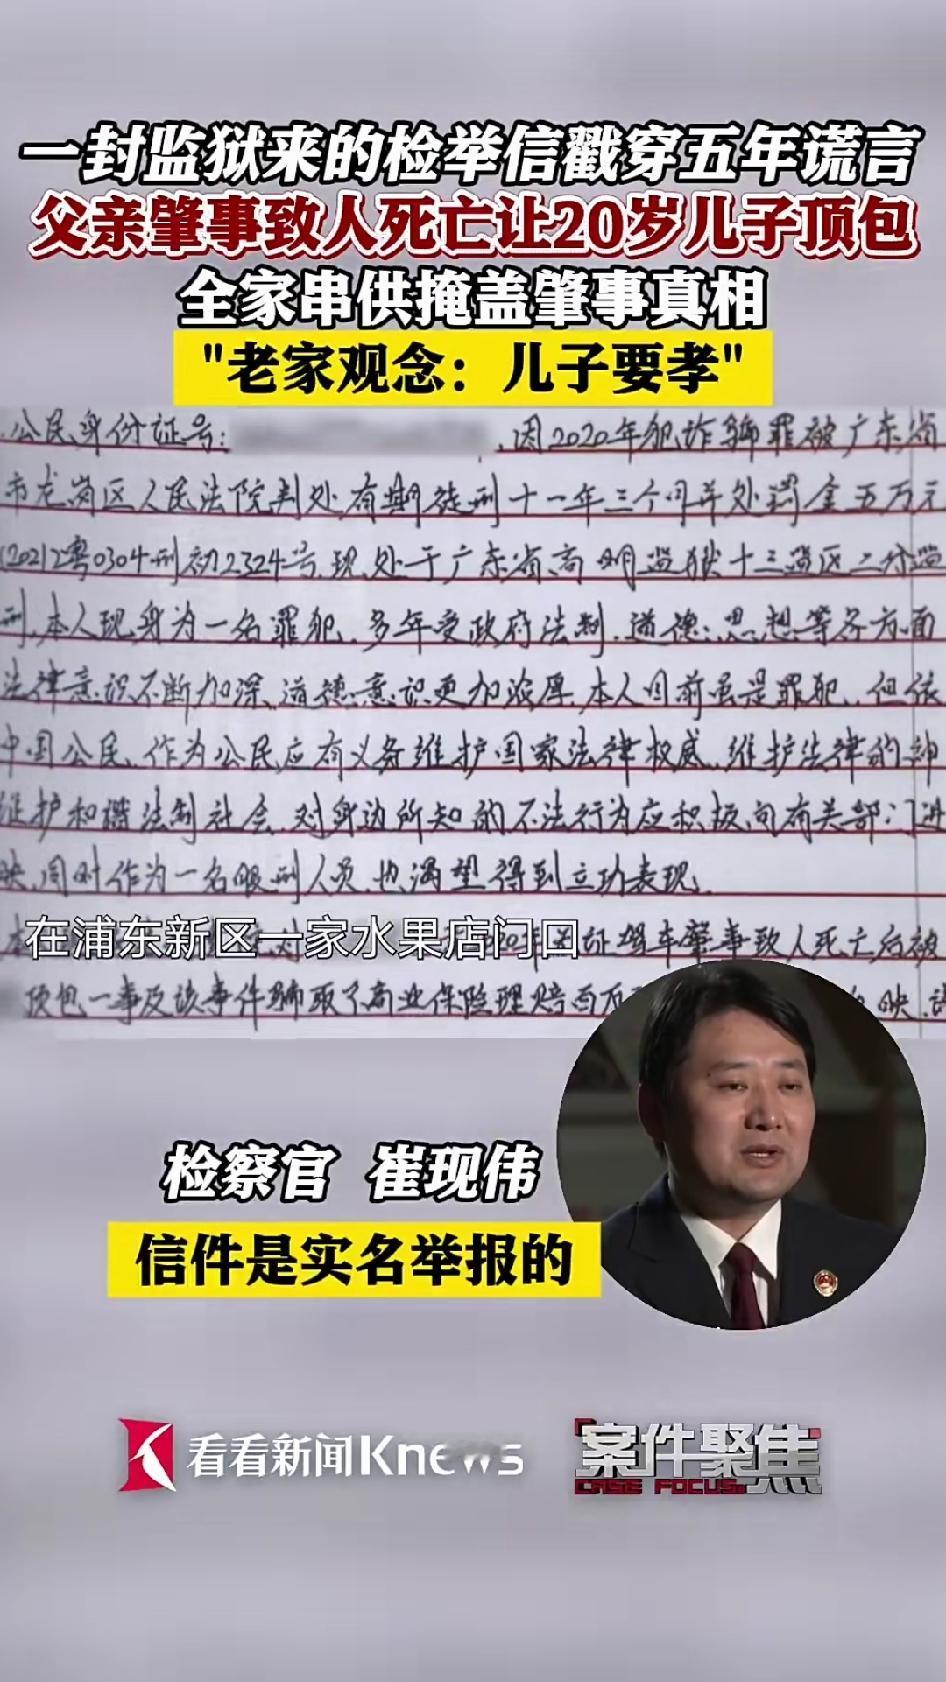 一封监狱来的检举信戳穿五年谎言
父亲肇事致人死亡让20岁儿子顶包
全家串供掩盖肇事真相
"老家观念：儿子要孝"
公民身份证号: ，因2020年犯诈骗罪被广东省
市龙岗区人民法院判处有期徒刑十一年三个月并处罚金五万元
(2021)粤0304刑初2324号,现处于广东省高明监狱十三监区二分监
刑,本人现身为一名罪犯,多年受政府法制、道德、思想等各方面
法律意识不断加深,道德意识更加浓厚,本人目前虽是罪犯,但依
中国公民,作为公民应有义务维护国家法律权威、维护法律的神
维护和谐法制社会,对身边所知的不法行为应积极向有关部门进
映,同时作为一名服刑人员,也渴望得到立功表现.
在浦东新区一家水果店门口
证驾车肇事致人死亡后被
顶包一事及该事件骗取了商业保险理赔百万
检察官 崔现伟
信件是实名举报的
看看新闻Knews
案件聚焦
CASE FOCUS